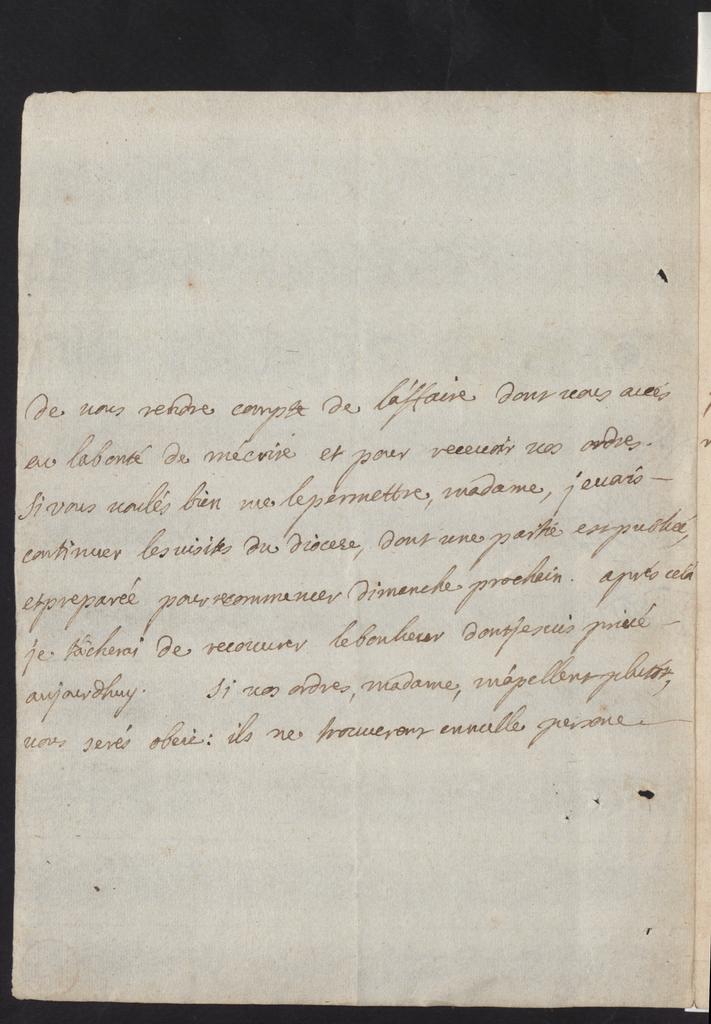 de vous rendre compte de l'affaire dont vous avés
eu labonté de m'écrire et pour recevoir vos ordres.
Si vous voulés bien me lepermettre, madame, jevais
continuer lesvisites du diocese, dont une partie estpubliée,
etpreparée pourrecommencer dimanche prochain. après cela
je tâcherai de recouvrer lebonheur dontjesuis privé
aujourdhuy. Si vos ordres, madame, m'apellent plutost,
vous serés obeie: ils ne trouveront ennulle persone